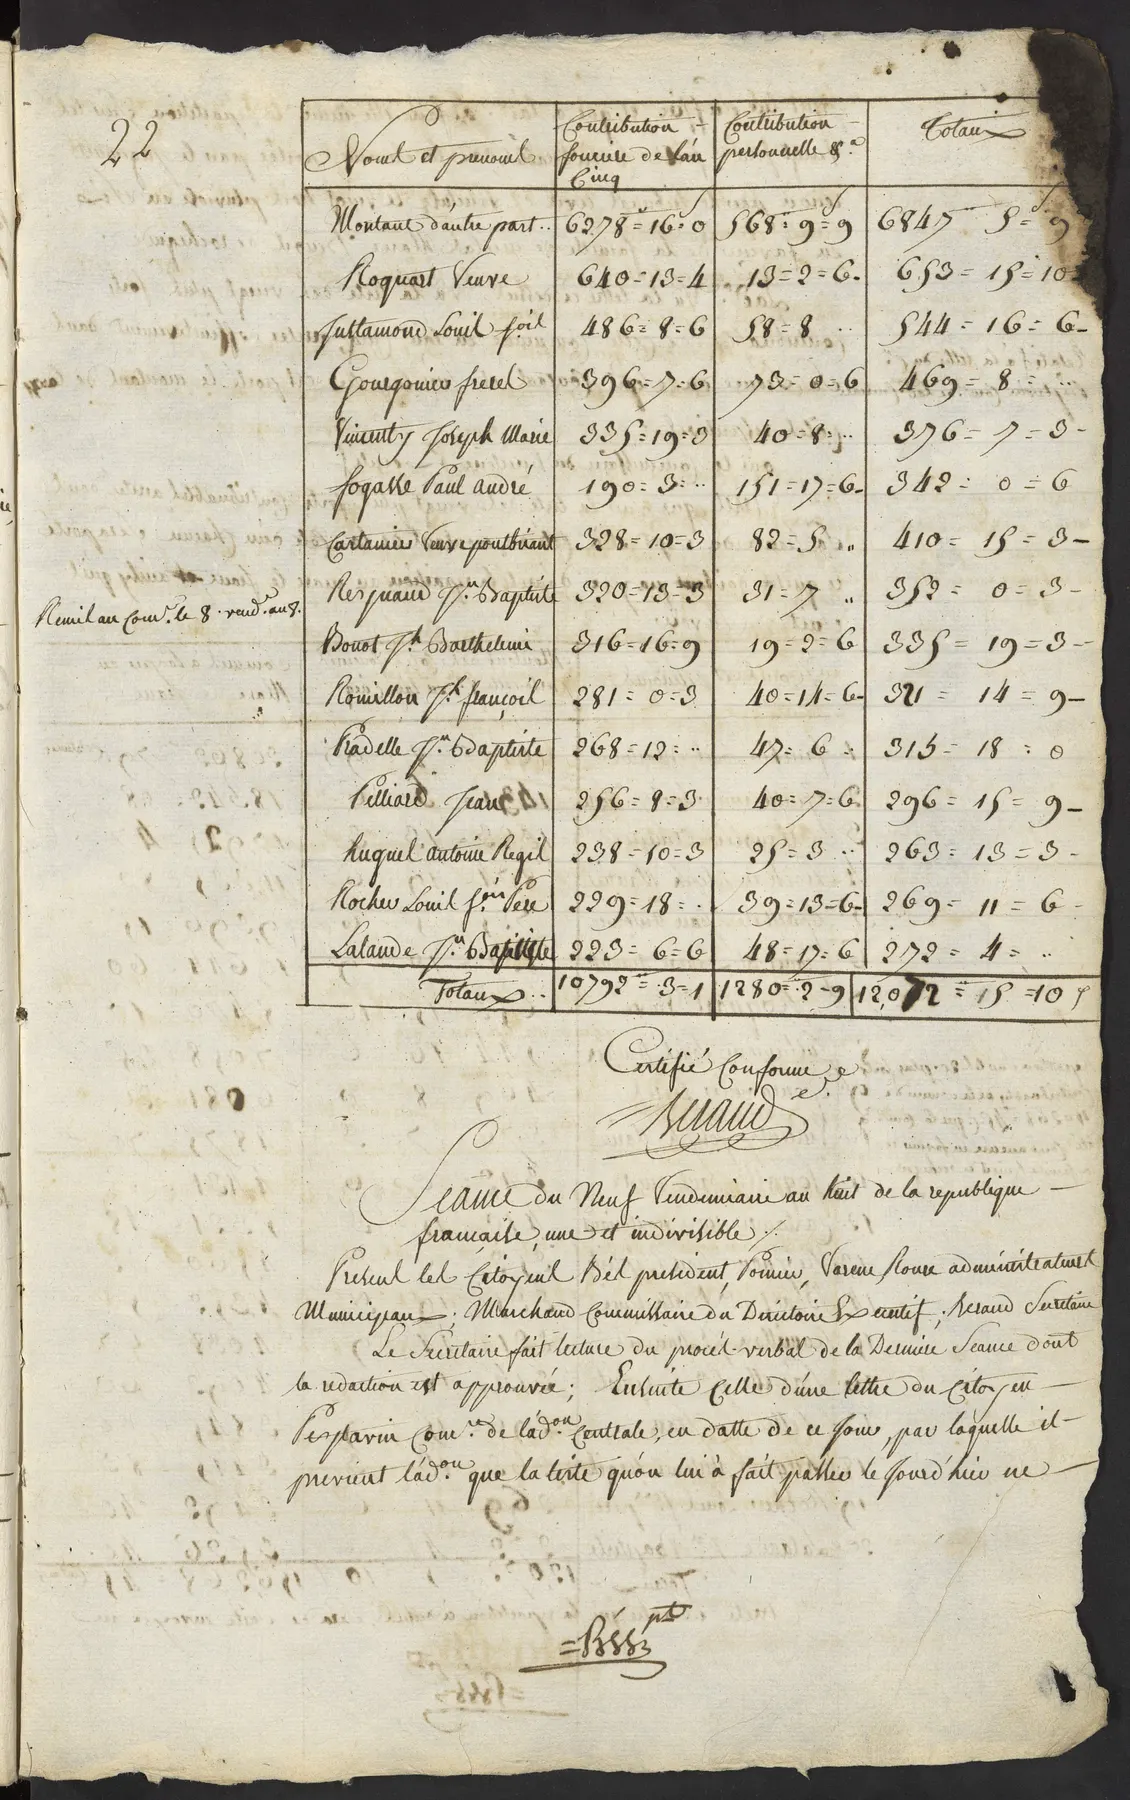 22
Noms et prenoms Contribution fonciere de l'an Cinq Contribution personnelle &.a Totaux
Montant d'autre part.. 6278 = 16 = 0 568 = 9 = 9 6847 5 = 9
Roquart Veuve 640 = 13 = 4 13 = 2 = 6 653 = 15 = 10
Justamond Louis f.ois 486 = 8 = 6 58 = 8 .. 544 = 16 = 6
Gourgonier freres 396 = 7 = 6 73 = 0 = 6 469 = 8 = ..
Vincenty Joseph Marie 335 = 19 = 3 40 = 8 = .. 376 = 7 = 3
fogasse Paul André 190 = 3 = .. 151 = 17 = 6 342 = 0 = 6
Cartanier Veuve pontbriant 328 = 10 = 3 82 = 5 „ 410 = 15 = 3
Respaud J.n Baptiste 320 = 13 = 3 31 = 7 „ 352 = 0 = 3
Remis au Com.re le 8. vend.re an 8.
Bonot J.h Barthelemi 316 = 16 = 9 19 = 2 = 6 335 = 19 = 3
Rouillon J.h françois 281 = 0 = 3 40 = 14 = 6 321 = 14 = 9
Pradelle J.n Baptiste 268 = 12 = .. 47 = 6 = 315 = 18 = 0
Pelliard Jean 256 = 8 = 3 40 = 7 = 6 296 = 15 = 9
huguet antoine Regis 238 = 10 = 3 25 = 3 .. 263 = 13 = 3
Rocher Louis f.ois Pere 229 = 18 = .. 39 = 13 = 6 269 = 11 = 6
Lalande J.n Baptiste 223 = 6 = 6 48 = 17 = 6 272 = 4 = ..
Totaux.. 10792 = 3 = 1 1280 = 2 = 9 12,072 = 15 = 10
Certifié Conforme
Beraud
Seance du Neuf Vendemiaire an huit de la republique
française, une et indivisible ./.
Presens les Citoyens Bés president, Pomier, Varenne Roure administrateurs
Municipaux; Marchand Commissaire du Directoire Executif; Beraud Secretaire
Le Secretaire fait lecture du procés-verbal de la Derniere Seance dont
la redaction est approuvée; Ensuite Celle d'une lettre du Citoyen
Com.re de l'ad.on Centrale, en datte de ce Jour, par laquelle il
previent l'ad.on que la liste qu'on lui à fait passer le Jourd'hier ne